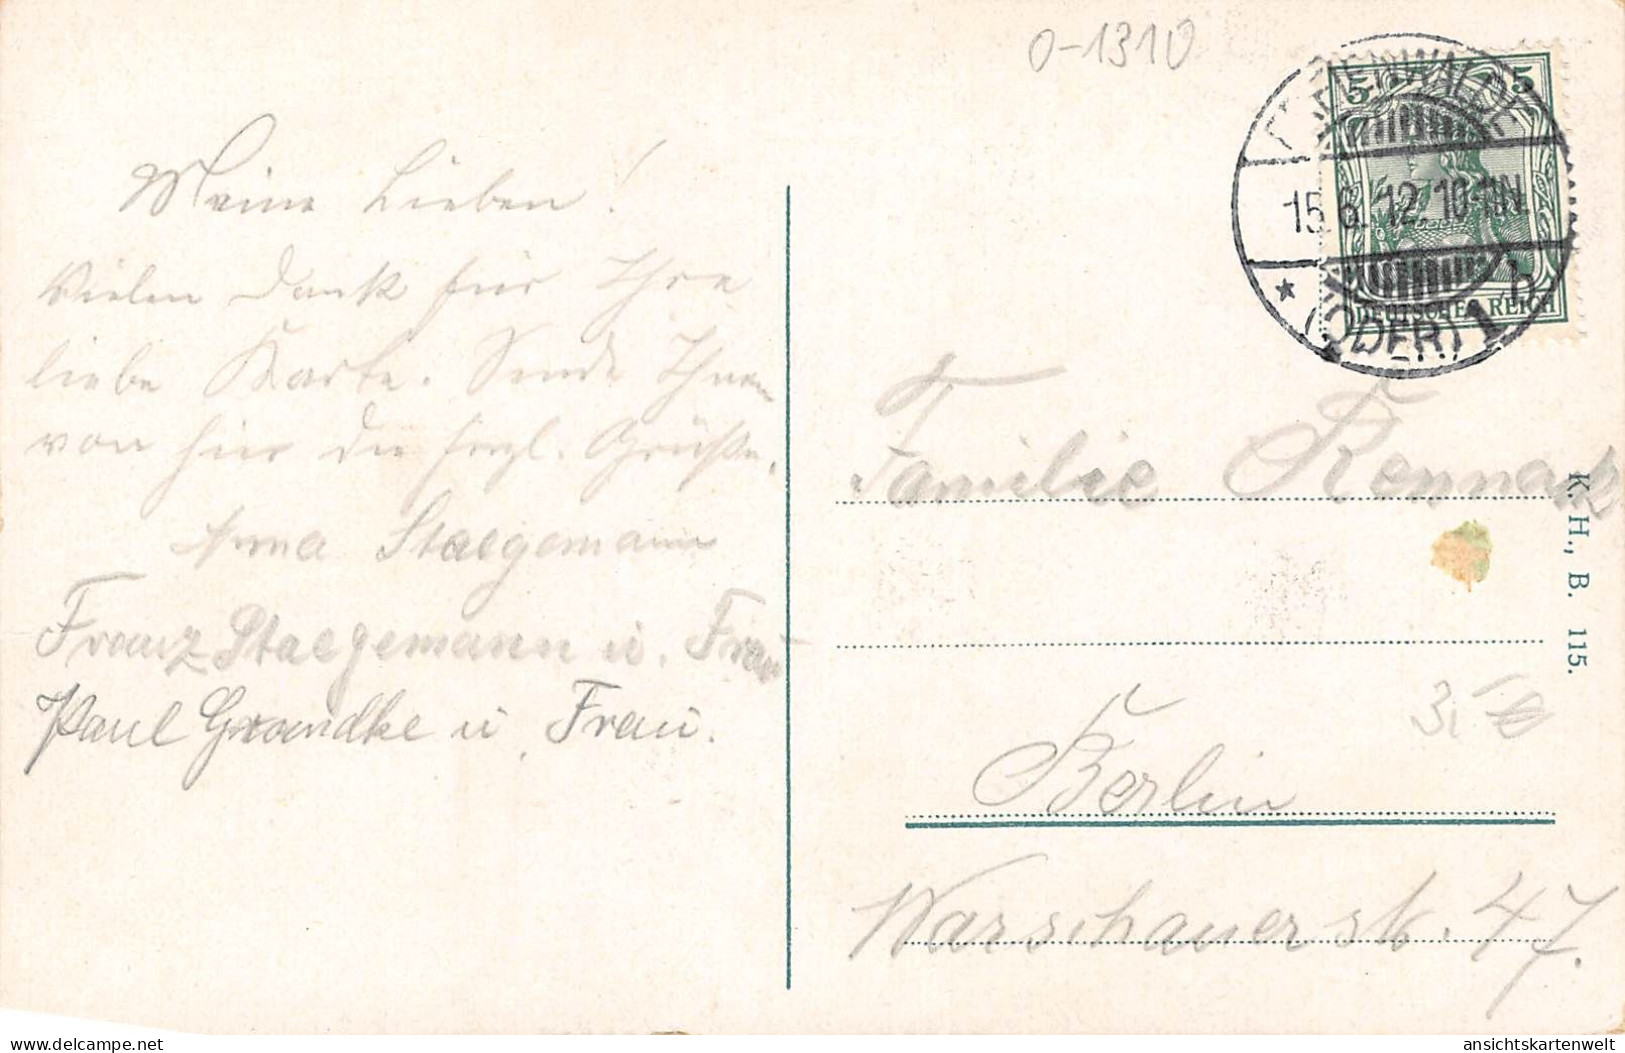 0-1310
Meine Lieben!
Vielen Dank für Ihre
liebe Karte. Sende Ihnen
von hier die herzl. Grüße.
Anna Staegemann
Franz Staegemann u. Frau
Paul Grandke u. Frau.
5 5
15.6.12.10-11N.
* (ODER) 1 b
DEUTSCHES REICH
Familie Rennack
K. H., B. 115.
Berlin
Warschauerstr. 47.
delcampe.net
ansichtskartenwelt